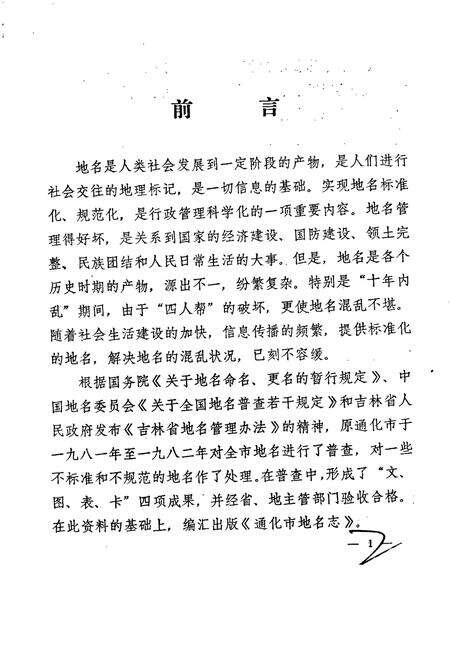 前 言
地名是人类社会发展到一定阶段的产物，是人们进行
社会交往的地理标记，是一切信息的基础。实现地名标准
化、规范化，是行政管理科学化的一项重要内容。地名管
理得好坏，是关系到国家的经济建设、国防建设、领土完
整、民族团结和人民日常生活的大事。但是，地名是各个
历史时期的产物，源出不一，纷繁复杂。特别是“十年内
乱”期间，由于“四人帮”的破坏，更使地名混乱不堪。
随着社会生活建设的加快，信息传播的频繁，提供标准化
的地名，解决地名的混乱状况，已刻不容缓。
根据国务院《关于地名命名、更名的暂行规定》、中
国地名委员会《关于全国地名普查若干规定》和吉林省人
民政府发布《吉林省地名管理办法》的精神，原通化市于
一九八一年至一九八二年对全市地名进行了普查，对一些
不标准和不规范的地名作了处理。在普查中，形成了“文、
图、表、卡”四项成果，并经省、地主管部门验收合格。
在此资料的基础上，编汇出版《通化市地名志》。
— 1 —